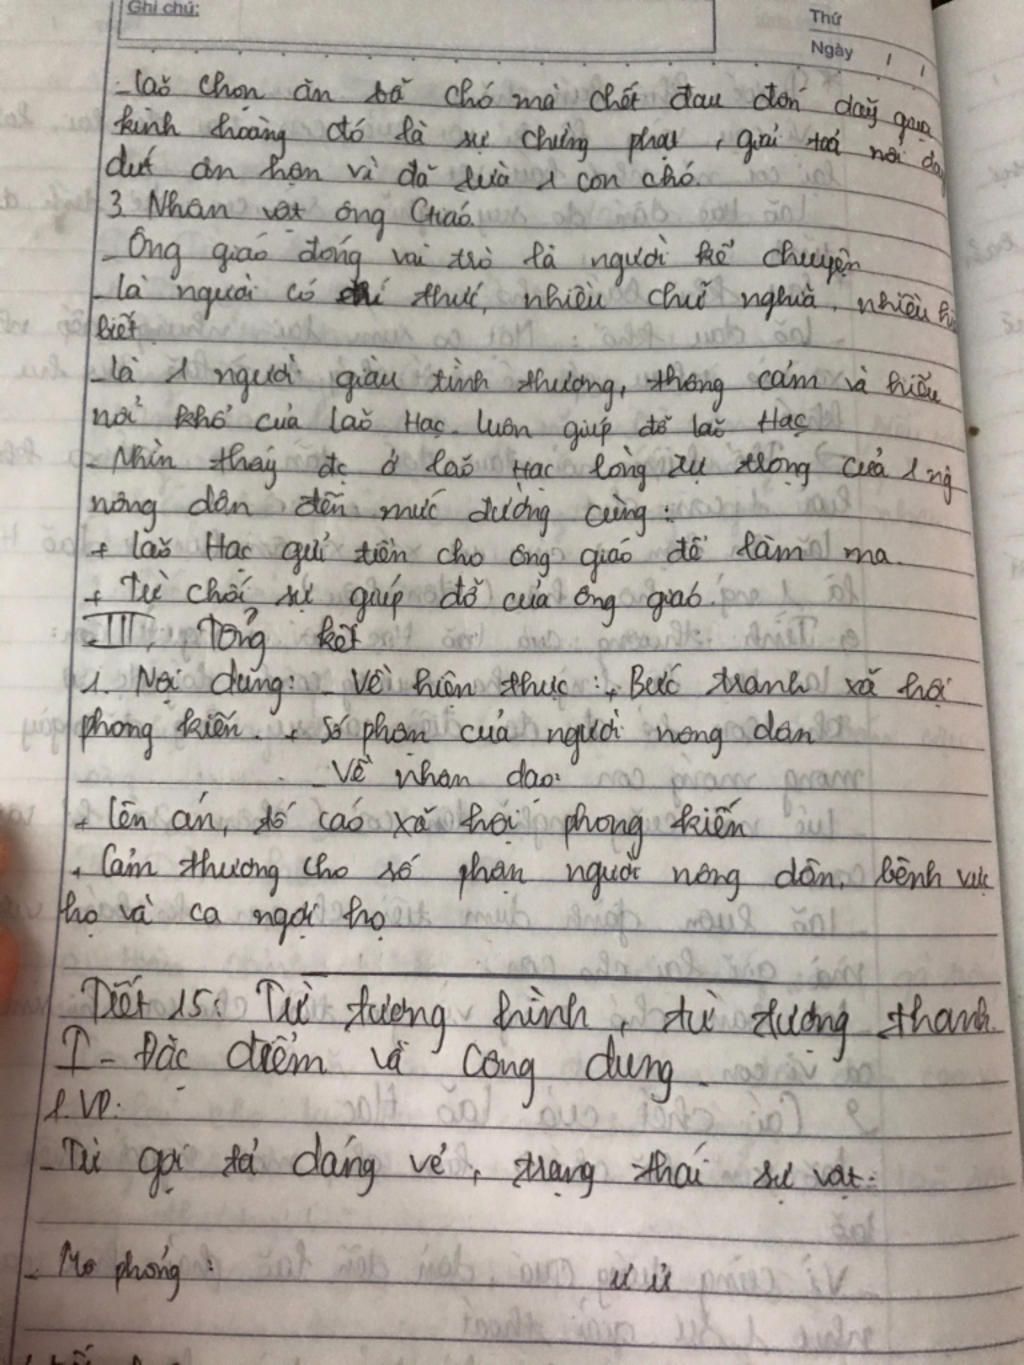 Ghi chú:
Thứ
Ngày / /
- lão chọn ăn bã chó mà chết đau đớn dãy
kinh hoàng đó là sự chừng phạt, giải toả nỗi
dứt ân hận vì đã lừa 1 con chó.
3. Nhân vật ông Giáo.
- Ông giáo đóng vai trò là người kể chuyện
- là người có thức, nhiều chữ nghĩa, nhiều
biết
- là 1 người giàu tình thương, thông cảm và hiểu
nỗi khổ của lão Hạc. luôn giúp đỡ lão Hạc
- Nhìn thấy đc ở lão Hạc lòng tự trọng của 1 ng
nông dân đến mức đường cùng:
+ lão Hạc gửi tiền cho ông giáo để làm ma.
+ Từ chối sự giúp đỡ của ông giáo.
III, Tổng kết
1. Nội dung: - Về hiện thực: + Bức tranh xã hội
phong kiến. + số phận của người nông dân
- Về nhân đạo:
+ lên án, tố cáo xã hội phong kiến
+ Cảm thương cho số phận người nông dân, bênh vực
họ và ca ngợi họ
Tiết 15: Từ tượng hình, từ tượng thanh
I - Đặc điểm và công dụng
1. VD:
- Từ gợi tả dáng vẻ, trạng thái sự vật:
- Mô phỏng: ư ử